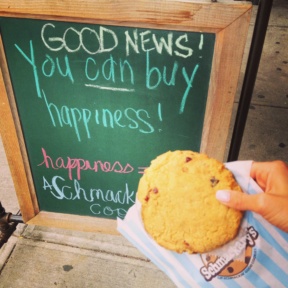 GOOD NEWS!
You can buy
happiness!
happiness=
A Schmack
Schma